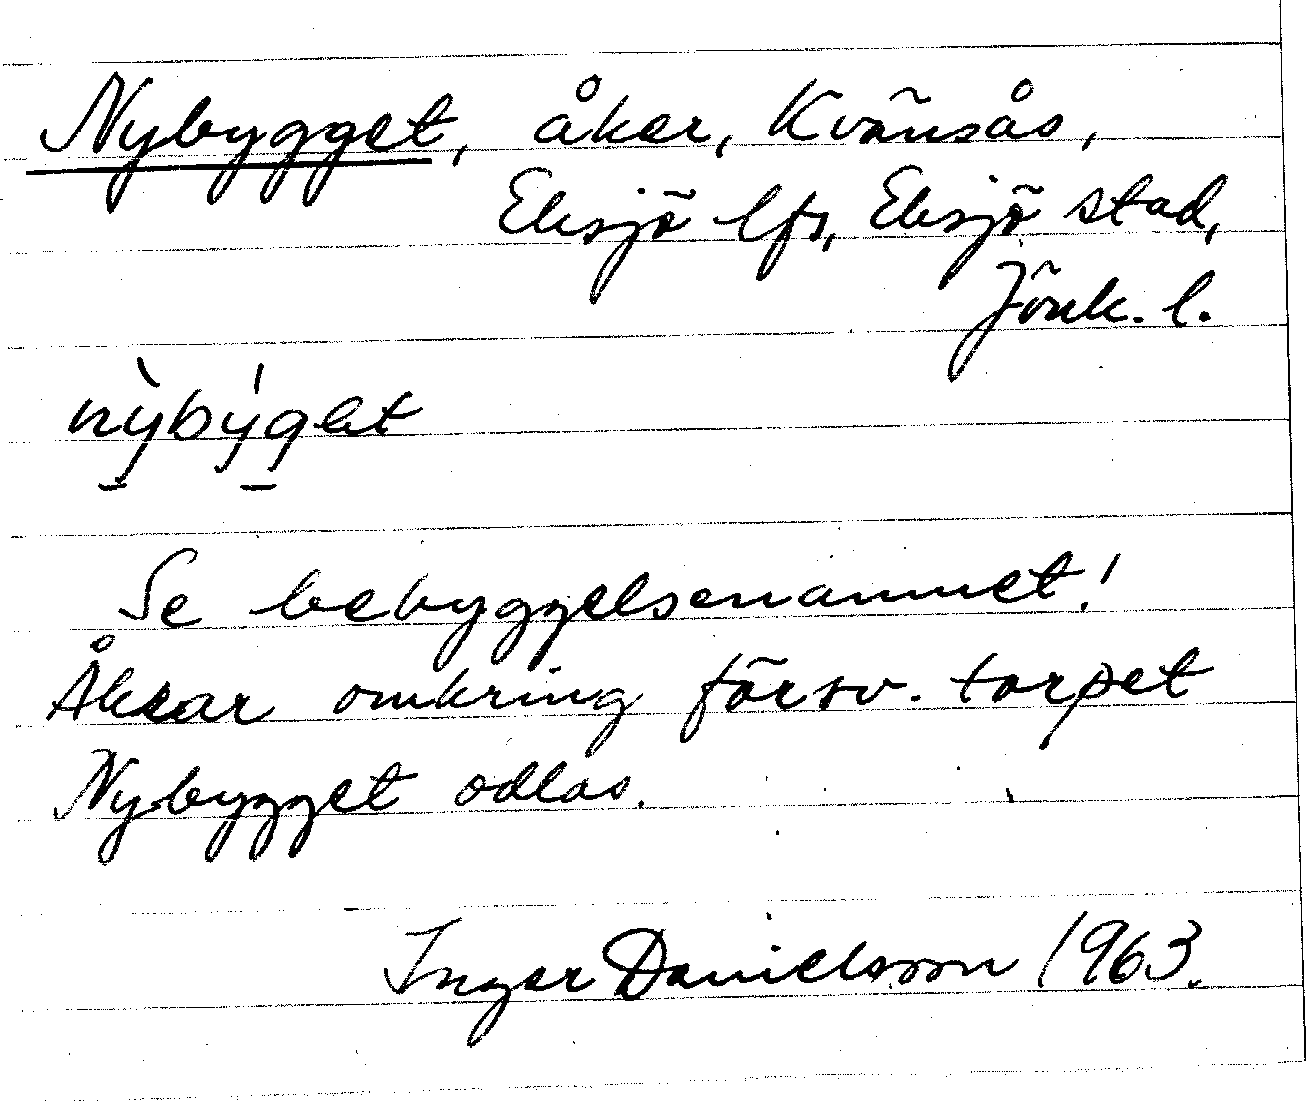 Nybygget, åker, Kvänsås,
Eksjö lfs, Eksjö stad,
Jönk. l.
nỳbýget
Se bebyggelsenamnet!
Åkrar omkring försv. torpet
Nybygget odlas.
Inger Danielsson 1963.